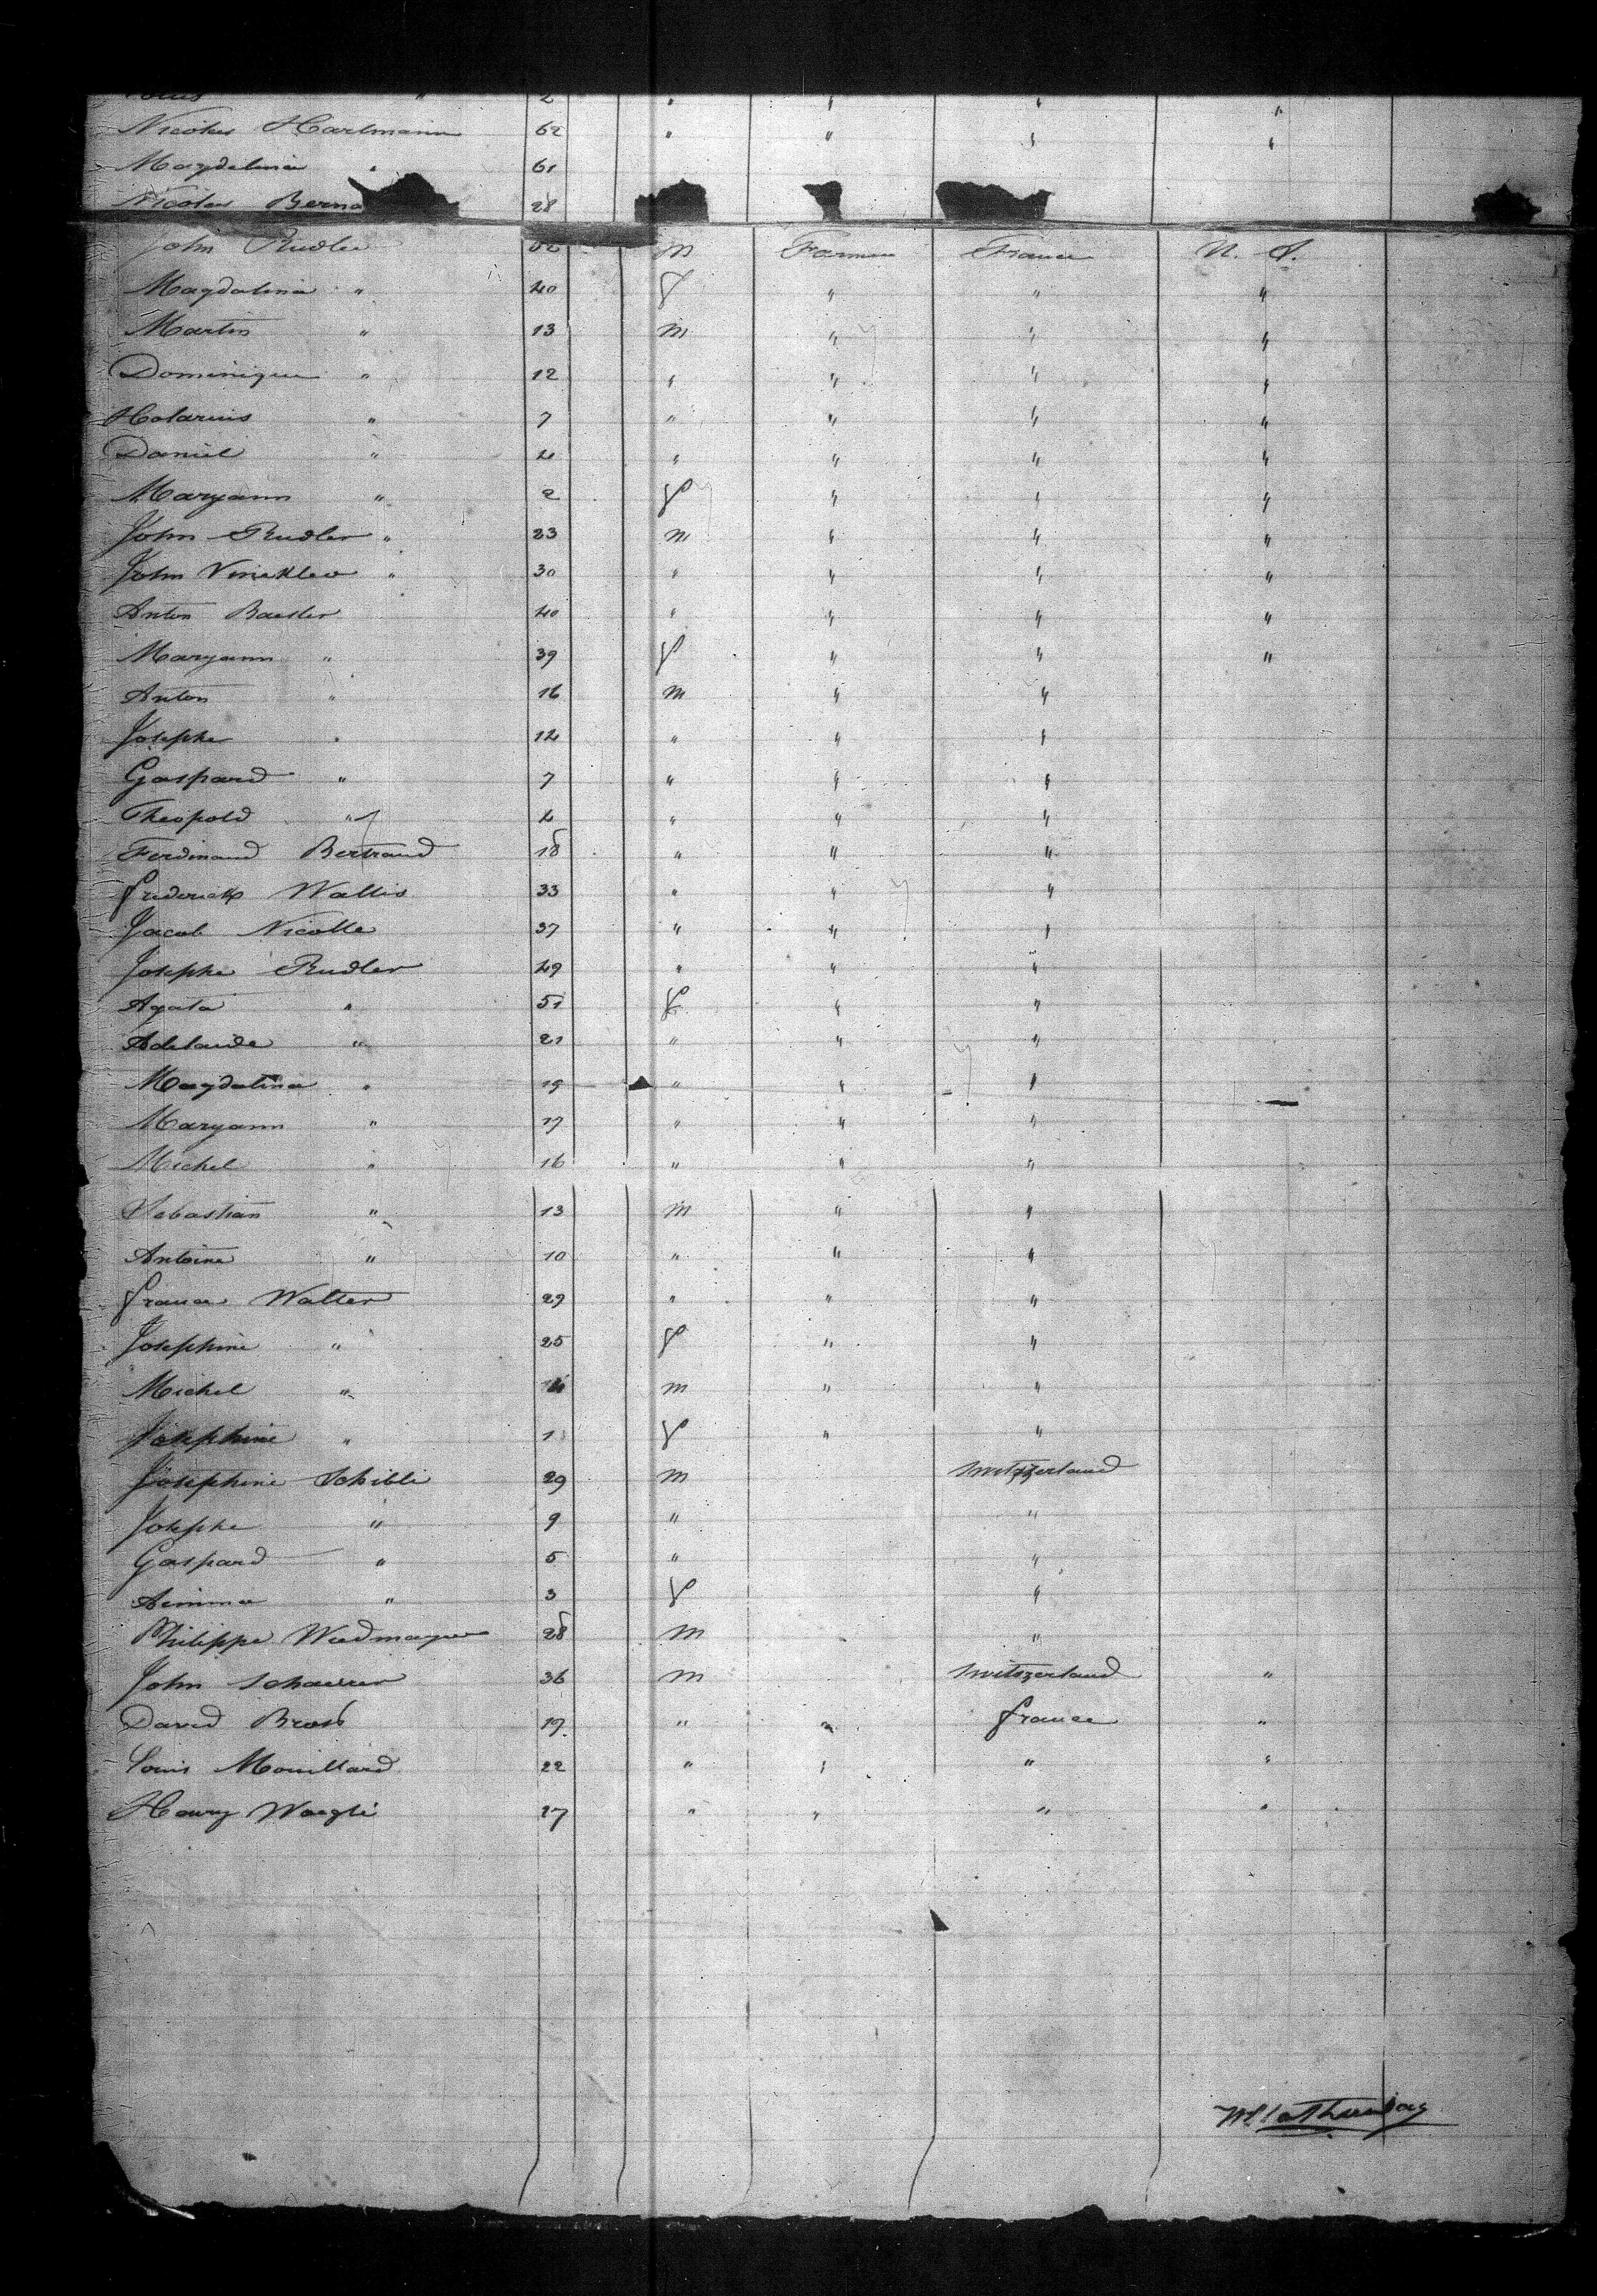 " 2 " " " "
Nicolas Hartmann 62 " " " "
Magdalena " 61
Nicolas Berna 28
John Rudler 52 M Farmer France U. S.
Magdalina " 40 f " " "
Martin " 13 m " " "
Dominique " 12 " " " "
Holarius " 7 " " " "
Daniel " 4 " " " "
Maryann " 2 f " " "
John Rudler " 23 m " " "
John Vinckler " 30 " " " "
Anton Baesler 40 " " " "
Maryann " 39 f " " "
Anton " 16 m " "
Josephe " 12 " " "
Gaspard " 7 " " "
Theopold " 4 " " "
Ferdinand Bertrand 18 " " "
frederick Wallis 33 " " "
Jacob Nicolle 37 " " "
Josephe Rudler 49 " " "
Agata " 51 f " "
Adelaide " 21 " " "
Magdalina " 19 " " "
Maryann " 17 " " "
Michel " 16 " " "
Sebastian " 13 m " "
Antoine " 10 " " "
france Walter 29 " " "
Josephine " 25 f " "
Michel " m " "
Josephine " 1 f " "
Josephine Schibli 29 m Switzzerland
Josephe " 9 " "
Gaspard " 5 " "
Aimma " 3 f "
Philippe Wiedmayer 28 m "
John Schaerer 36 m Switzzerland "
David Bross 19 " " france "
Louis Mouillard 22 " " " "
Henry Waegli 27 " " " "